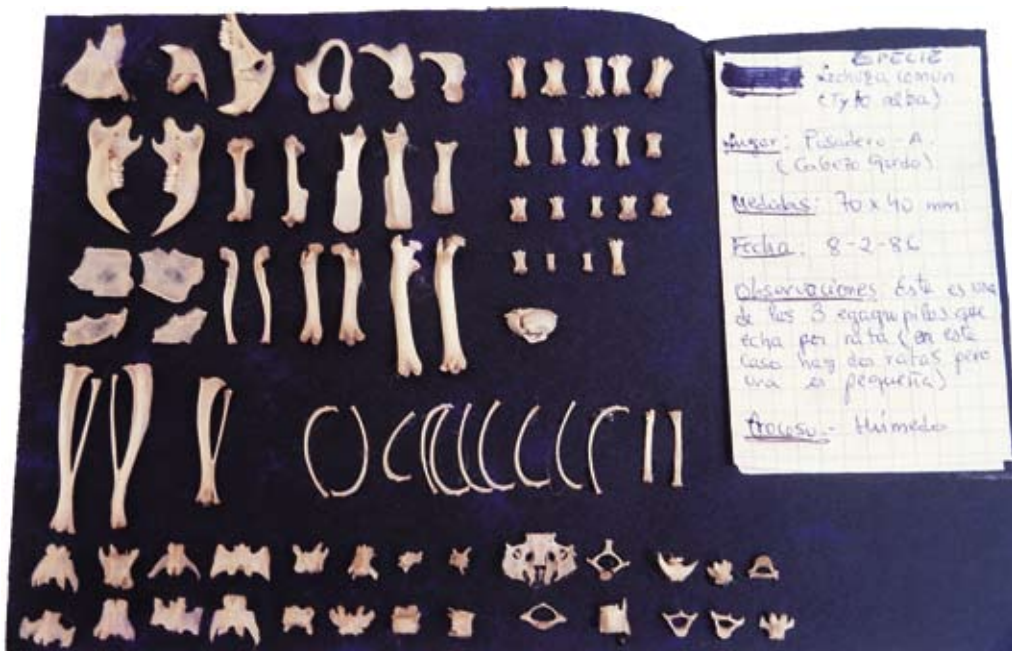 ESPECIE
Lechuza común
(Tyto alba)
Lugar: Posadero - A.
(Cabezo Gordo)
Medidas: 70 x 40 mm
Fecha: 8-2-86
Observaciones: Este es una
de las 3 egagropilas que
echa por rata (en este
caso hay dos ratas pero
una es pequeña)
Proceso.- Húmedo